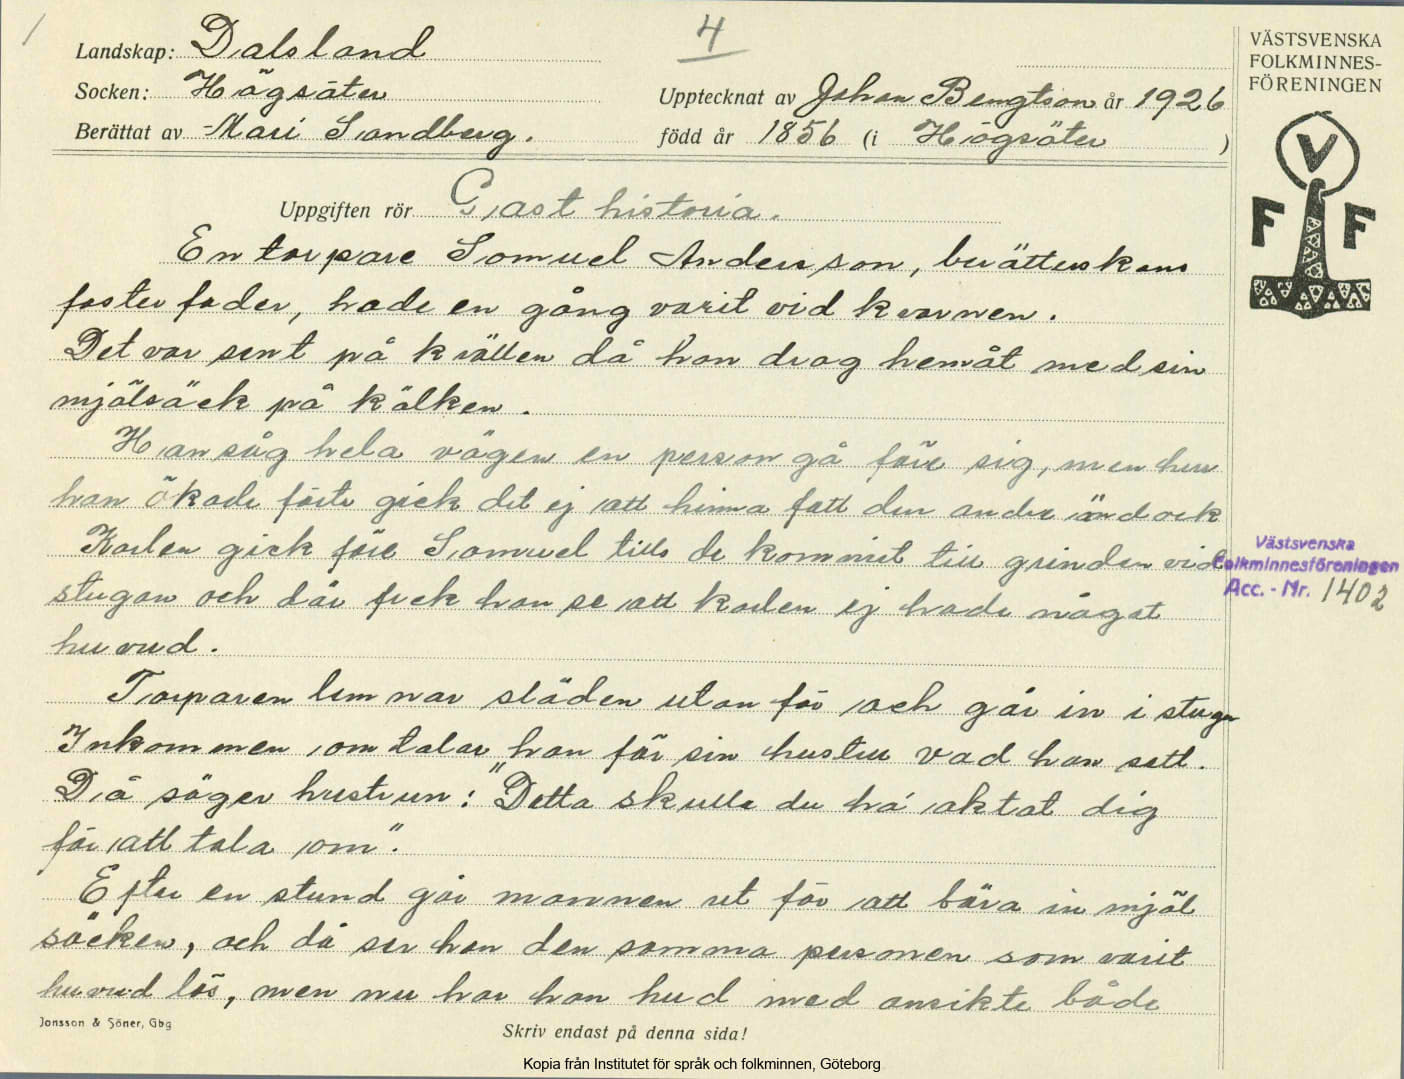 4
Landskap: Dalsland
Socken: Högsäter
Upptecknat av Johan Bengtson år 1926
Berättat av Mari Sandberg.
född år 1856 (i Högsäter )
VÄSTSVENSKA
FOLKMINNES-
FÖRENINGEN
V
F F
Uppgiften rör Gast historia.
En torpare Samuel Andersson, berätterskans
foster fader, hade en gång varit vid kvarnen.
Det var sent på kvällen då han drog hemåt med sin
mjölsäck på kälken.
Han såg hela vägen en person gå före sig, men huru
han ökade farte gick det ej att hinna fatt den andre ändock
Karlen gick före Samuel tills de kommit till grinden vid
stugan och där fick han se att karlen ej hade något
huvud.
Torparen lemnar släden utan för och går in i stugan
Inkommen omtalar han för sin hustru vad han sett.
Då säger hustrun: "Detta skulle du ha aktat dig
för att tala om".
Efter en stund går mannen ut för att bära in mjöl
säcken, och då ser han den samma personen som varit
huvud lös, men nu har han hud med ansikte både
Västsvenska
Folkminnesföreningen
Acc. - Nr. 1402
Jonsson & Söner, Gbg
Skriv endast på denna sida!
Kopia från Institutet för språk och folkminnen, Göteborg